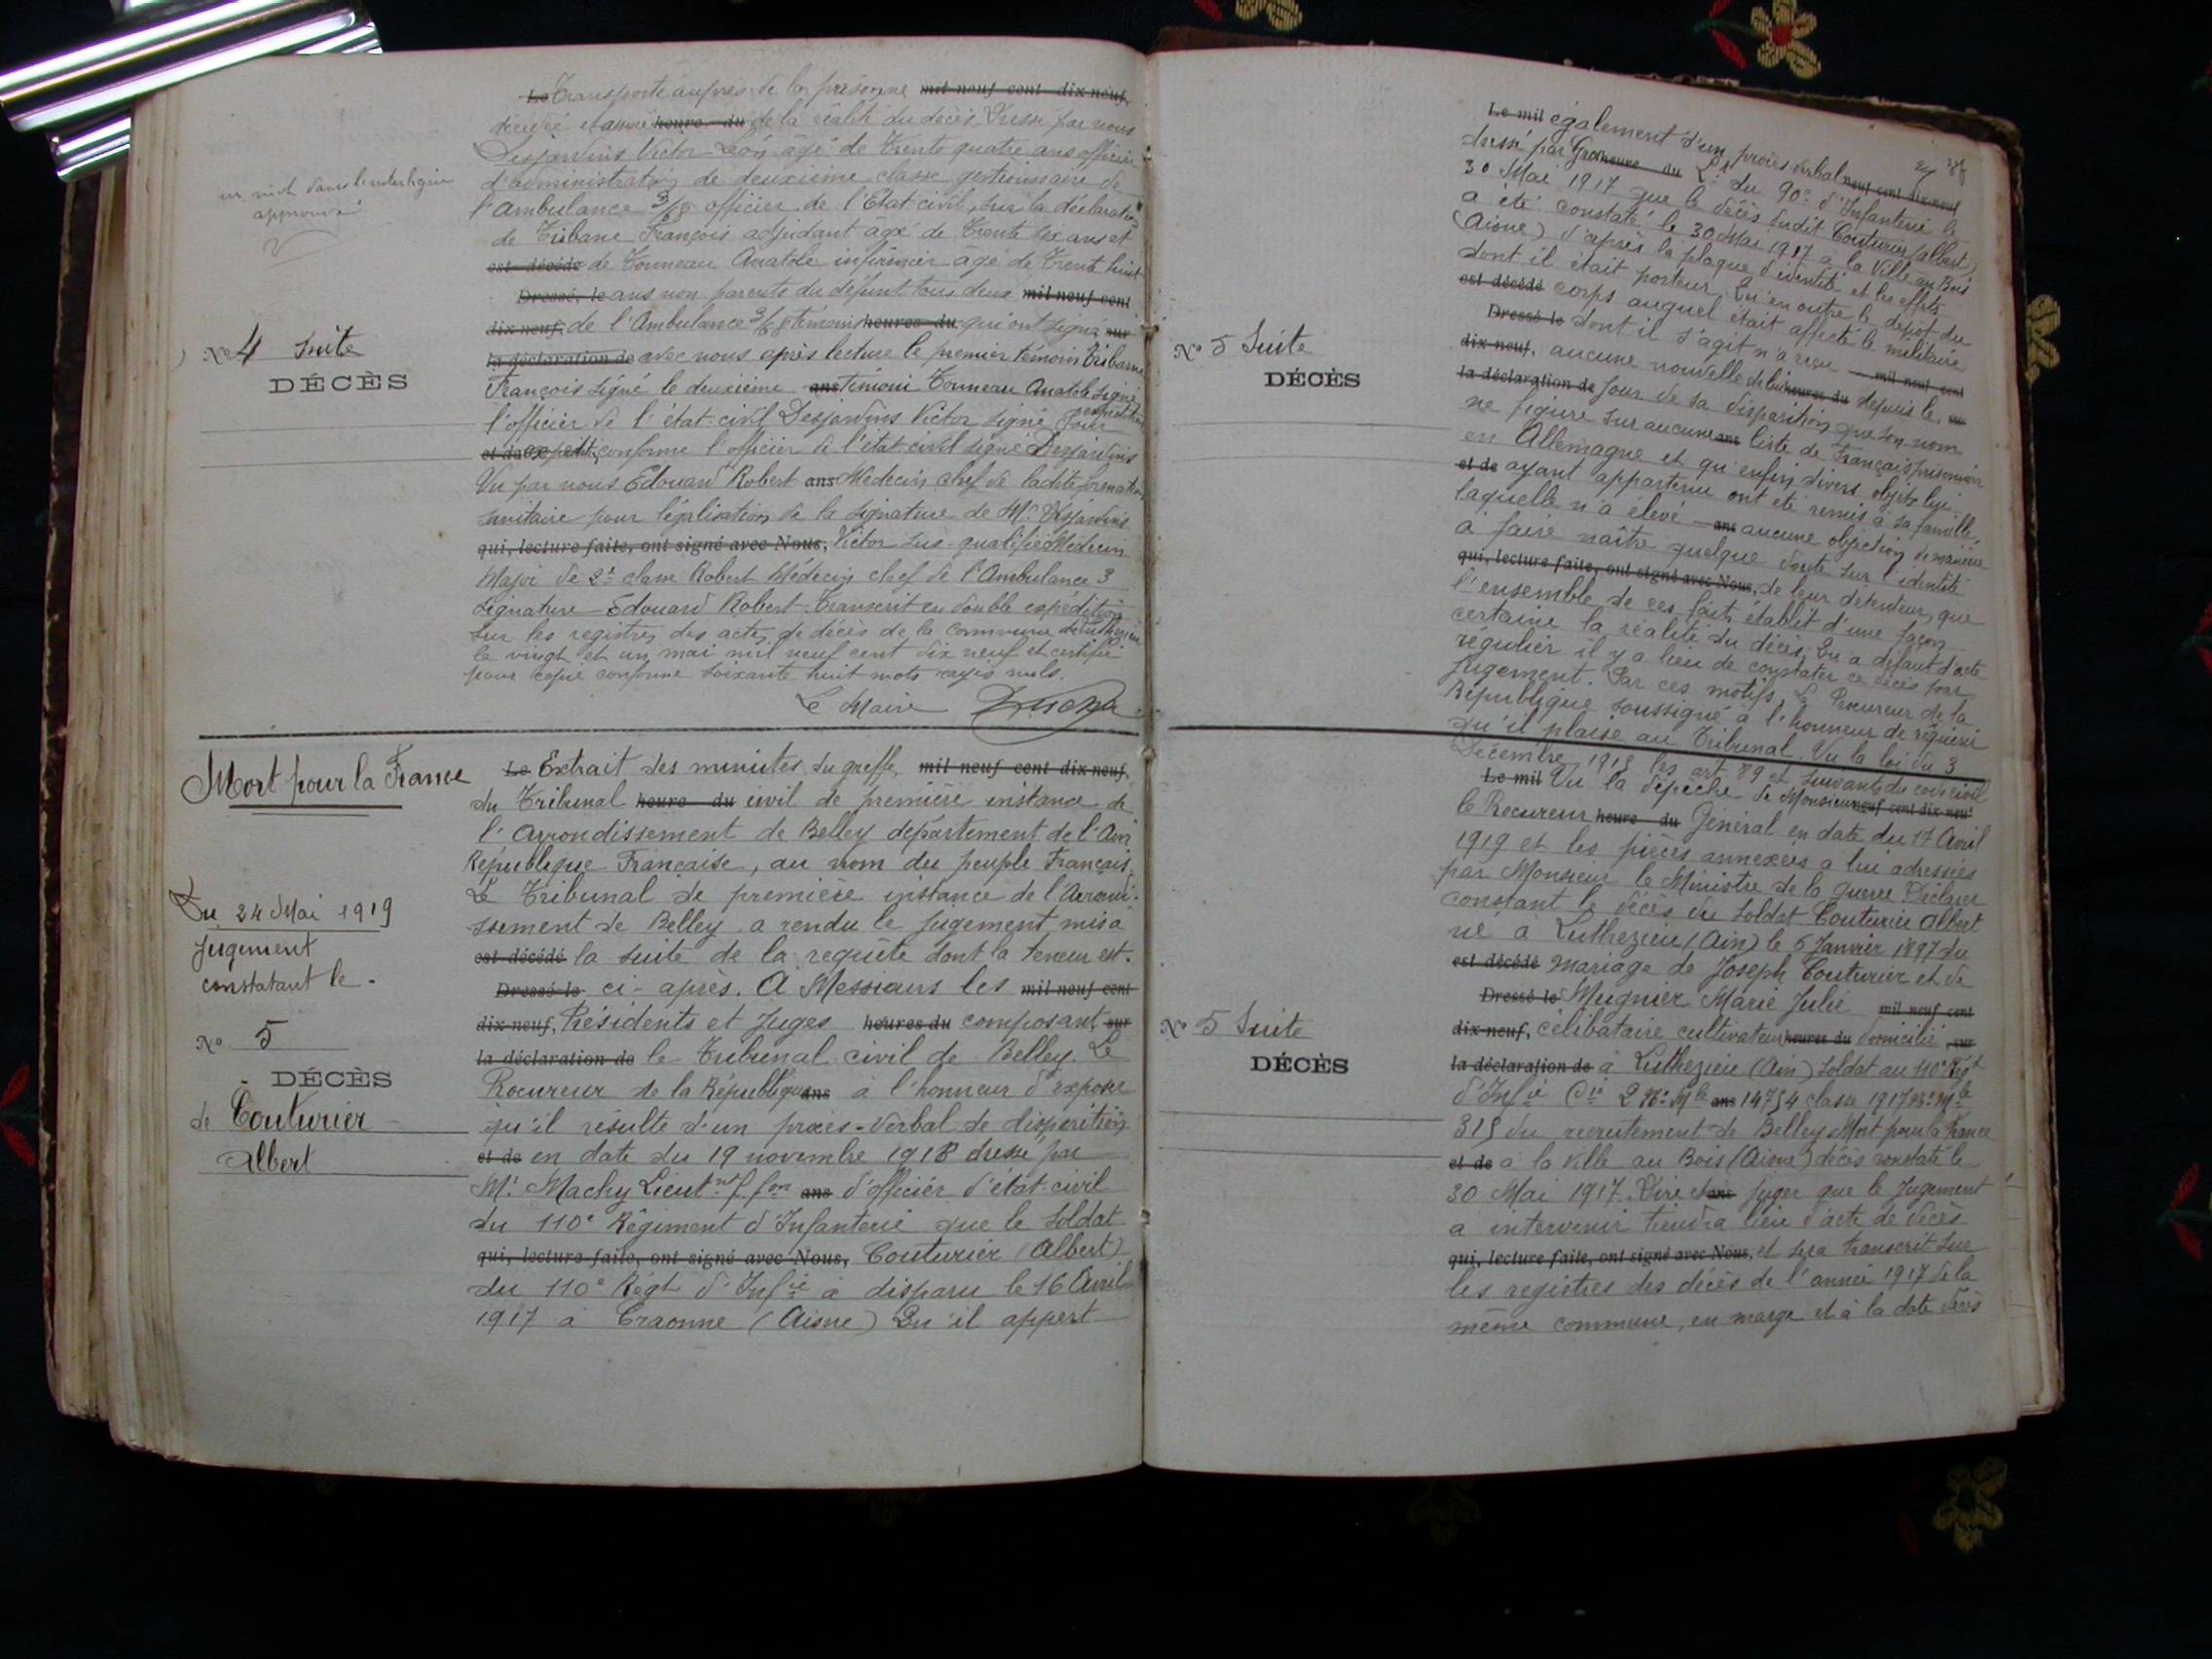 Le Transporté auprès de la personne mil neuf cent dix neuf,
heure du de la réalité du décès, Dressé par nous
Desjardins Victor Léon âgé de Trente quatre ans officier
d'administration de deuxième classe gestionnaire de
l'Ambulance 3/68 officier de l'Etat civil, sur la déclaration
de Tribane François adjudant âgé de Trente six ans et
est décédé de Tonneau Anatole infirmier âgé de Trente huit
Dressé, le ans non parents du défunt tous deux mil neuf cent
dix neuf, de l'Ambulance 3/68 témoins heures du qui ont signé sur
la déclaration de avec nous après lecture le premier témoin
François signé le deuxième ans témoin Tonneau Anatole signé
l'officier de l'état-civil Desjardins Victor signé Pour
et de conforme l'officier de l'état civil signé Desjardins
Vu par nous Edouard Robert ans Médecin chef de ladite formation
sanitaire pour légalisation de la signature de Mr Desjardins
qui, lecture faite, ont signé avec Nous, Victor sus-qualifié Médecin
Major de 2e classe Robert Médecin chef de l'Ambulance 3
signature Edouard Robert. Transcrit en double expédition
sur les registres des actes de décès de la commune de Luthézieu
le vingt et un mai mil neuf cent dix neuf et certifié
pour copie conforme soixante huit mots rayés nuls.
Le Maire
un mot dans l'interligne
approuvé
No 4 Suite
DÉCÈS
Mort pour la France
Du 24 Mai 1919
Jugement
constatant le -
No 5
DÉCÈS
de Couturier
Albert
Le Extrait des minutes du greffe, mil neuf cent dix neuf,
du Tribunal heure du civil de première instance de
l'Arrondissement de Belley département de l'Ain
République Française, au nom du peuple Français.
Le Tribunal de première instance de l'Arrondi-
ssement de Belley a rendu le Jugement, mis à
est décédé la suite de la requête dont la teneur est.
Dressé le ci-après. A Messieurs les mil neuf cent
dix-neuf, Présidents et Juges heures du composant sur
la déclaration de le Tribunal civil de Belley. Le
Procureur de la République ans à l'honneur d'exposer
qu'il résulte d'un procès-verbal de disparition
et de en date du 19 novembre 1918 dressé par
Mr Machy Lieutnt f. fon ans d'officier d'état-civil
du 110e Régiment d'Infanterie que le Soldat
qui, lecture faite, ont signé avec Nous, Couturier (Albert)
du 110e Régt d'Infie a disparu le 16 Avril
1917 à Craonne (Aisne) Qu'il appert
Le mil également d'un procès verbal neuf cent dix-neuf
dressé par heure du Lt du 90e d'Infanterie le
30 Mai 1917 que le décès dudit Couturier (albert)
a été constaté le 30 Mai 1917 à la Ville au Bois
(Aisne) d'après la plaque d'identité et les effets
dont il était porteur. Qu'en outre le dépôt du
est décédé corps auquel était affecté le militaire
Dressé le dont il s'agit n'a reçu mil neuf cent
dix-neuf, aucune nouvelle de lui heures du depuis le, sur
la déclaration de jour de sa disparition, que son nom
ne figure sur aucune ans liste de Français prisonniers
en Allemagne et qu'enfin divers objets lui
et de ayant appartenu ont été remis à sa famille,
laquelle n'a élevé ans aucune objection de nature
à faire naître quelque doute sur l'identité
qui, lecture faite, ont signé avec Nous, de leur détenteur, que
l'ensemble de ces faits établit d'une façon
certaine la réalité du décès. Qu'à défaut d'acte
régulier il y a lieu de constater ce décès par
jugement. Par ces motifs, Le Procureur de la
République soussigné a l'honneur de requérir
qu'il plaise au Tribunal. Vu la loi du 3
Décembre 1915 les art. 89 et suivants du code civil
No 5 Suite
DÉCÈS
Le mil Vu la dépêche de Monsieur neuf cent dix-neuf
le Procureur heure du Général en date du 17 Avril
1919 et les pièces annexées a lui adressées
par Monsieur le Ministre de la guerre. Déclarer
constant le décès du soldat Couturier Albert
né à Luthezieu (Ain) le 6 Janvier 1897 du
est décédé mariage de Joseph Couturier et de
Dressé le Mugnier Marie Julie mil neuf cent
dix-neuf, célibataire cultivateur heures du domicilié, sur
la déclaration de à Luthezieu (Ain) soldat au 110e Régt
d'Infie Cie 2 No Mle ans 14754 classe 1917 No Mle
315 du recrutement de Belley Mort pour la France
et de à la Ville au Bois (Aisne) décès constaté le
30 Mai 1917. Dire et ans juger que le Jugement
a intervenir tiendra lieu d'acte de décès
qui, lecture faite, ont signé avec Nous, et sera transcrit sur
les registres des décès de l'année 1917 de la
même commune, en marge et à la date
No 5 Suite
DÉCÈS